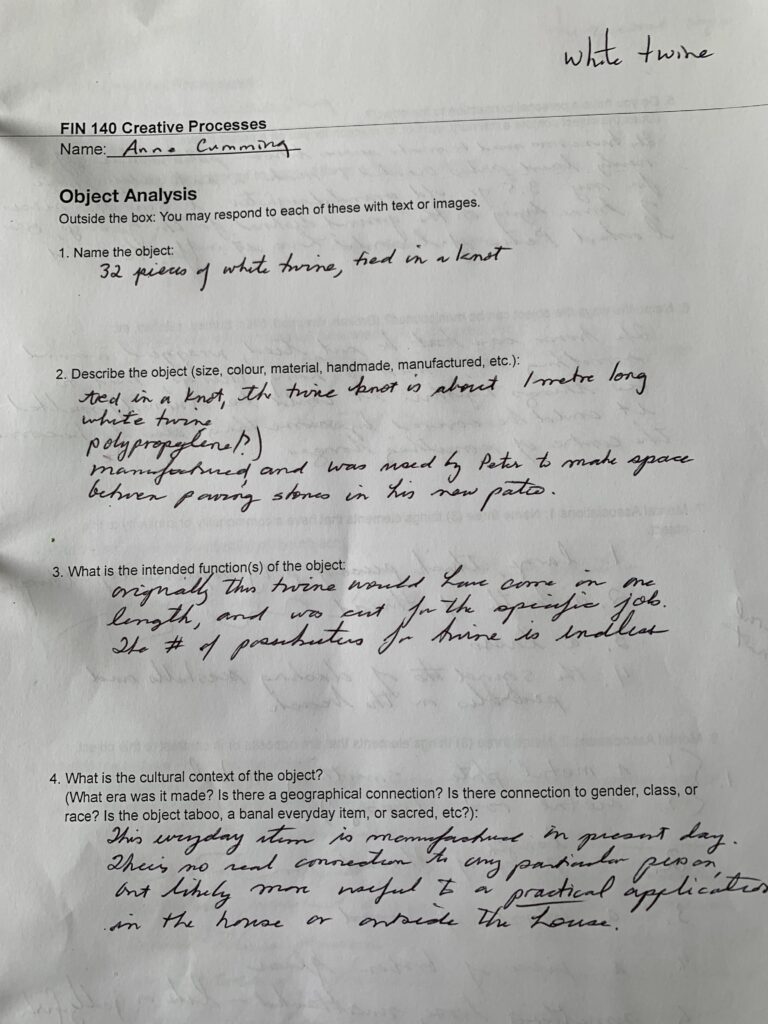 white twine
FIN 140 Creative Processes
Name: Anne Cumming
Object Analysis
Outside the box: You may respond to each of these with text or images.
1. Name the object:
32 pieces of white twine, tied in a knot
2. Describe the object (size, colour, material, handmade, manufactured, etc.):
tied in a knot, the twine knot is about 1 metre long
white twine
polypropylene(?)
manufactured, and was used by Peter to make space
between paving stones in his new patio.
3. What is the intended function(s) of the object:
originally this twine would have come in one
length, and was cut for the specific job.
The # of possibilities for twine is endless
4. What is the cultural context of the object?
(What era was it made? Is there a geographical connection? Is there connection to gender, class, or
race? Is the object taboo, a banal everyday item, or sacred, etc?):
This everyday item is manufactured in present day.
There is no real connection to any particular person,
but likely more useful to a practical application
in the house or outside the house.